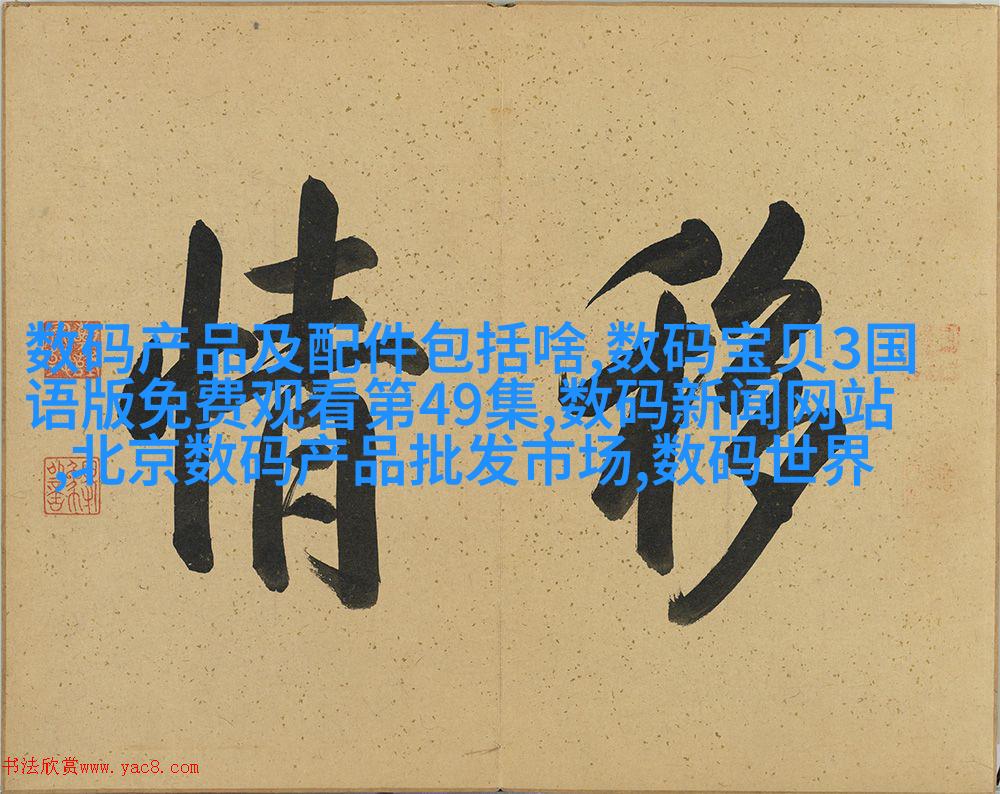 移情
数码产品及配件包括啥,数码宝贝3国
语版免费观看第49集,数码新闻网站
,北京数码产品批发市场,数码世界
书法欣赏www.yac8.com